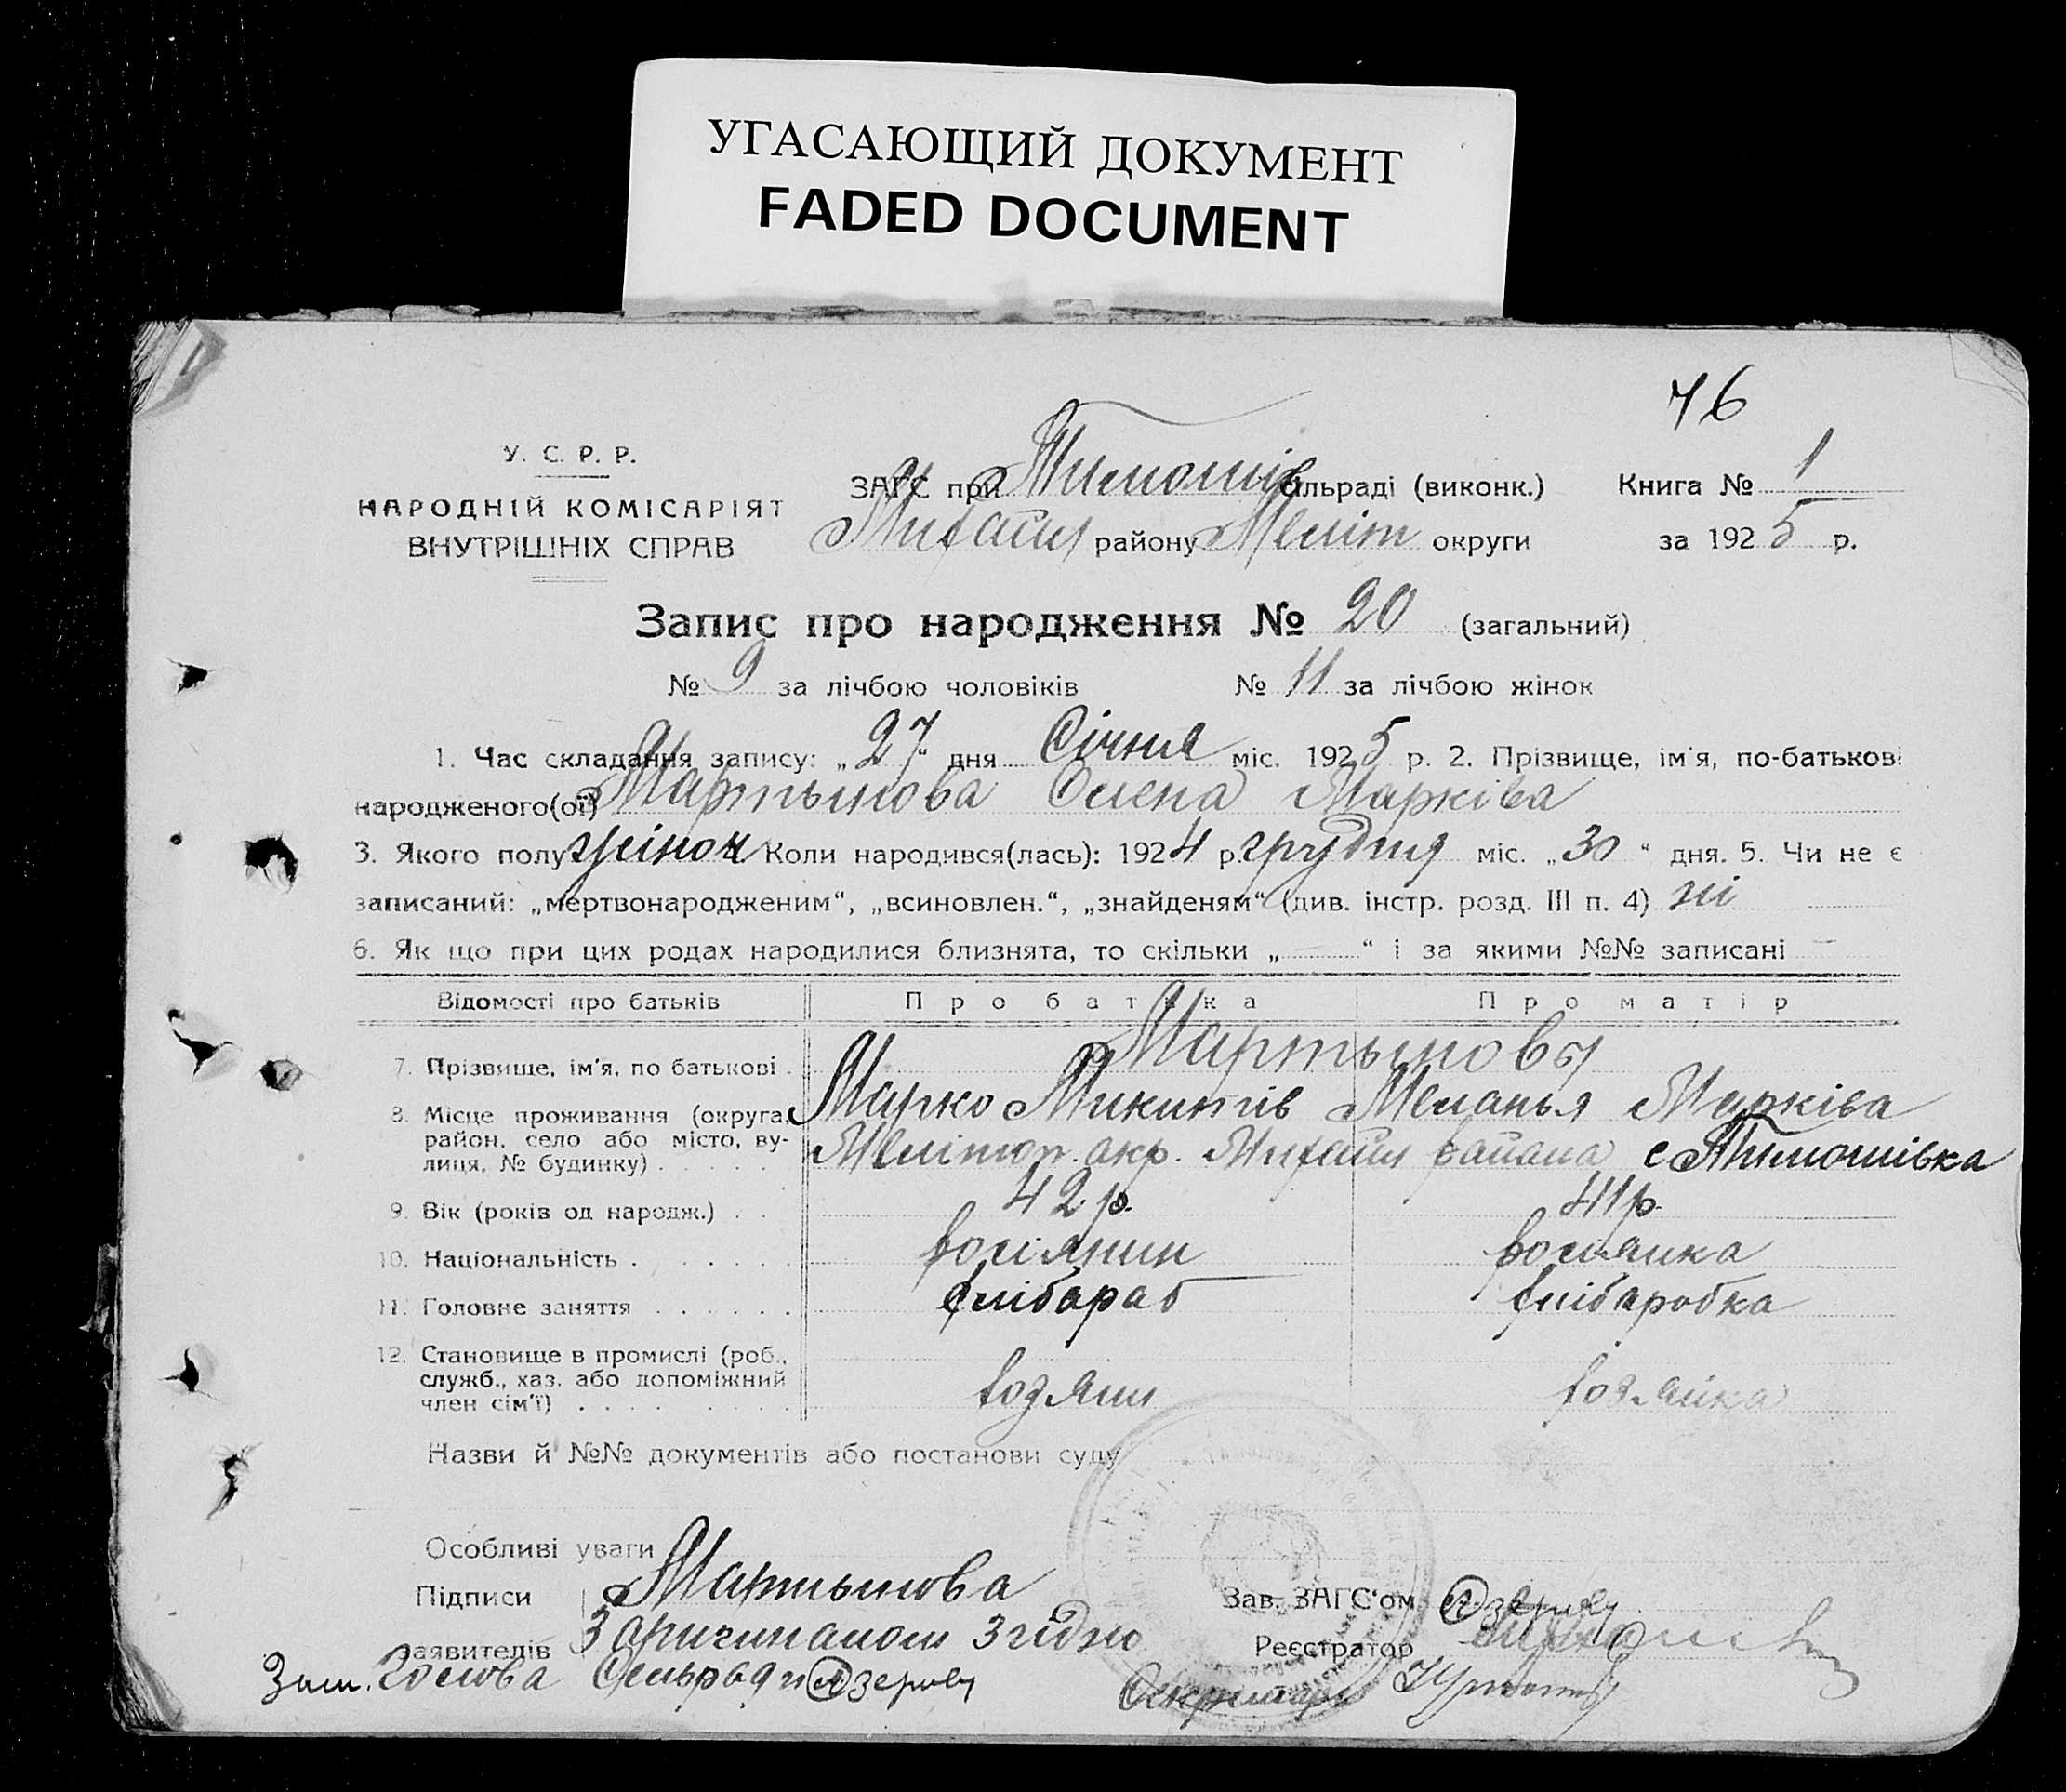 УГАСАЮЩИЙ ДОКУМЕНТ
FADED DOCUMENT
76
У. С. Р. Р.
НАРОДНІЙ КОМІСАРІЯТ
ВНУТРІШНІХ СПРАВ
ЗАГС при Тимошів сільраді (виконк.)
Михайл району Меліт округи
Книга № 1
за 1925 р.
Запис про народження № 20 (загальний)
№ 9 за лічбою чоловіків № 11 за лічбою жінок
1. Час складання запису: „27“ дня Січня міс. 1925 р. 2. Прізвище, ім'я, по-батькові
народженого(ої) Мартынова Олена Марківа
3. Якого полу жіноч Коли народився(лась): 1924 р. грудня міс. „30“ дня. 5. Чи не є
записаний: „мертвонародженим“, „всиновлен.“, „знайденям“ (див. інстр. розд. III п. 4) ні
6. Як що при цих родах народилися близнята, то скільки „—“ і за якими №№ записані —
Відомості про батьків Про батька Про матір
7. Прізвище, ім'я, по батькові Мартыновы
Марко Микитів Меланья Марківа
8. Місце проживання (округа, район, село або місто, ву-
лиця, № будинку) Мелітоп. окр. Михайл района с Тимошівка
9. Вік (років од народж.) 42 р. 41 р.
10. Національність росіянин росіянка
11. Головне заняття хлібараб хлібаробка
12. Становище в промислі (роб.,
служб., хаз. або допоміжний
член сім'ї) хозяин хозяйка
Назви й №№ документів або постанови суду
Особливі уваги
Підписи Мартынова Зав. ЗАГС'ом
заявителів З оригиналом згідно Реєстратор
Зам. Голова Сельради Озеров Секретарь